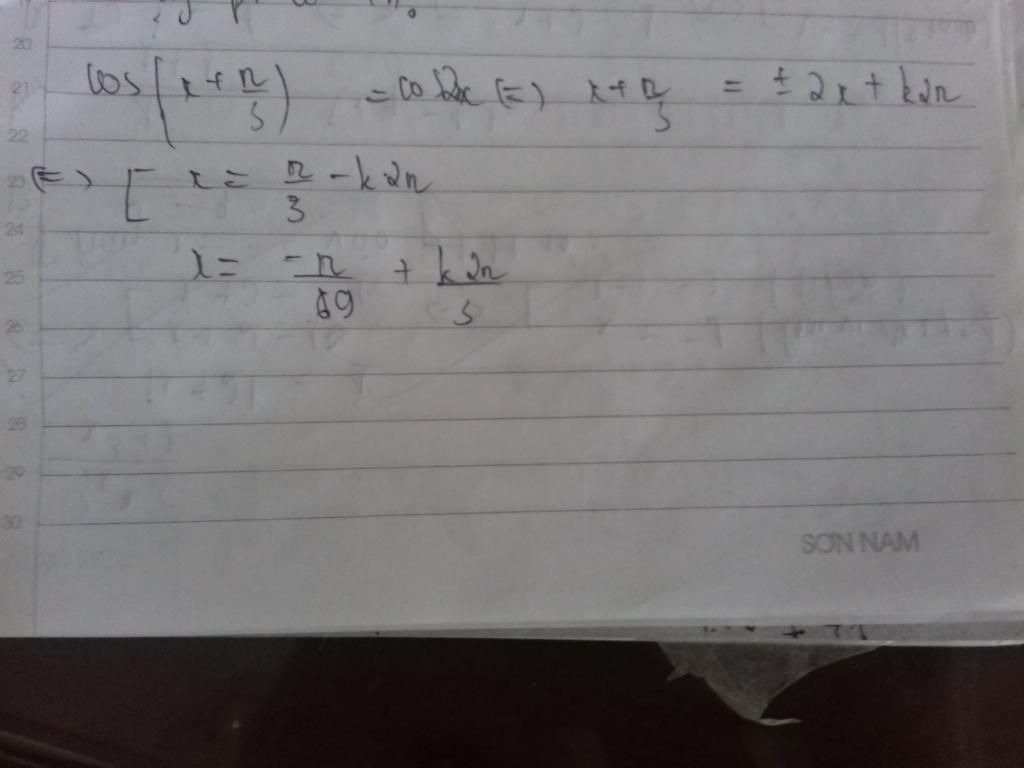 20
21 cos(x + π/3) = cos2x (=) x + π/3 = ± 2x + k2π
22
23 (=) [ x = π/3 - k2π
24
25 x = -π/9 + k2π/3
26
27
28
29
30
SƠN NAM